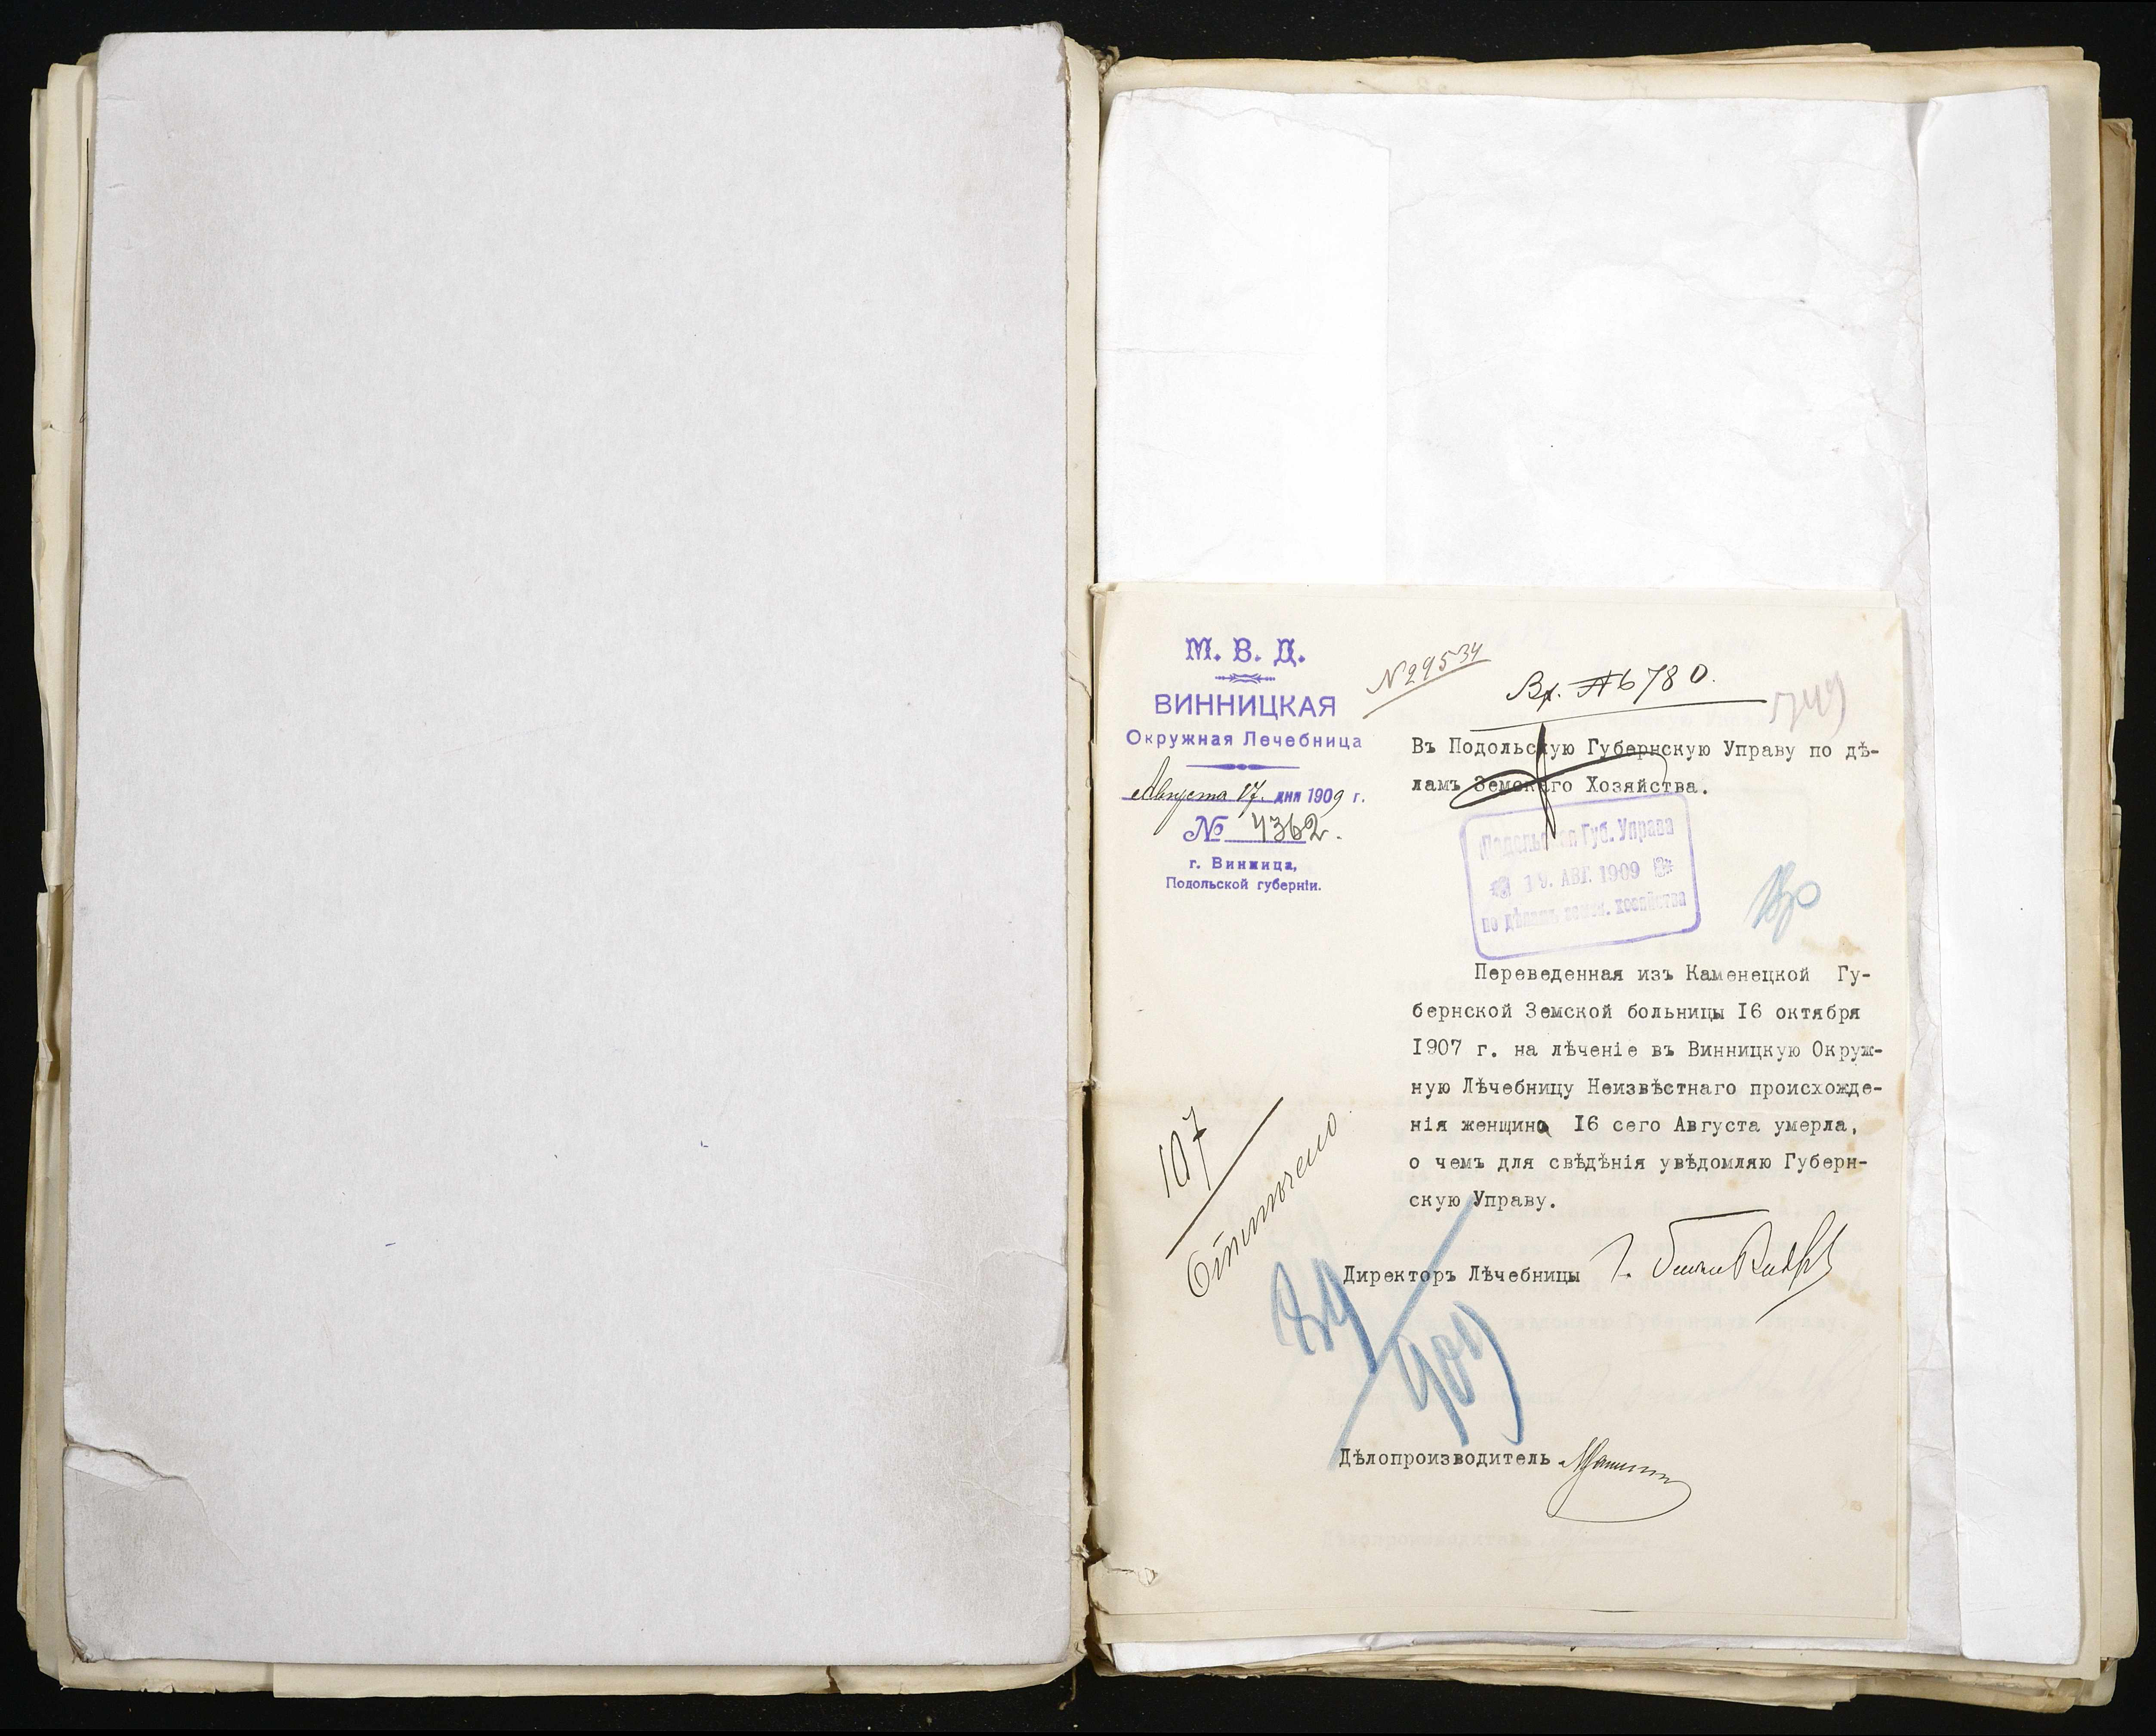 М. В. Д.
ВИННИЦКАЯ
Окружная Лечебница
Августа 17. дня 1909 г.
№ 4362.
г. Винница,
Подольской губерніи.
№ 29534
Вх. № 6780.
Въ Подольскую Губернскую Управу по дѣ-
ламъ Земскаго Хозяйства.
Подольская Губ. Управа
19. АВГ. 1909
по дѣламъ земск. хозяйства
Переведенная изъ Каменецкой Гу-
бернской Земской больницы 16 октября
1907 г. на лѣченіе въ Винницкую Окруж-
ную Лѣчебницу Неизвѣстнаго происхожде-
нія женщина 16 сего Августа умерла,
о чемъ для свѣдѣнія увѣдомляю Губерн-
скую Управу.
107
Отмѣчено
Директоръ Лѣчебницы
Дѣлопроизводитель